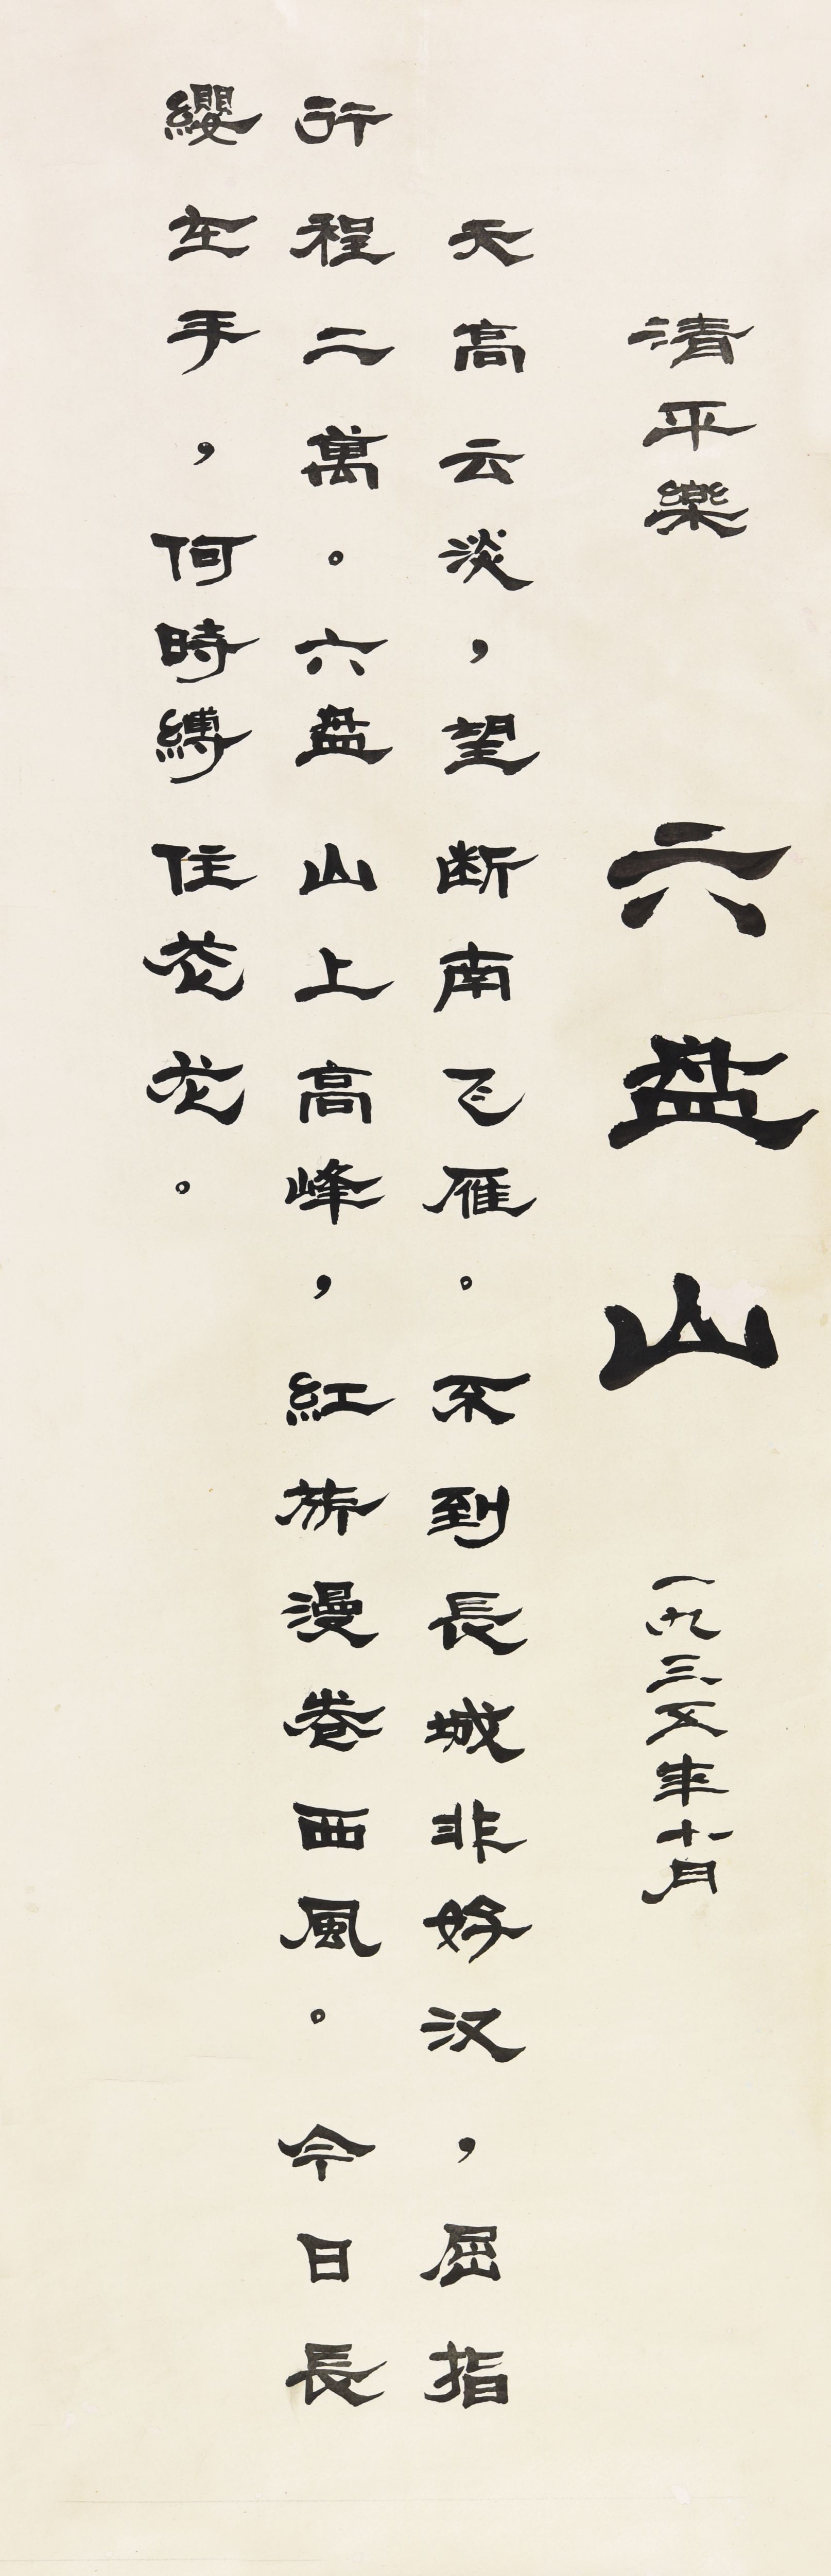 清平樂 六盘山 一九三五年十月
天高云淡，望断南飞雁。不到長城非好汉，屈指
行程二萬。六盘山上高峰，紅旂漫卷西風。今日長
纓在手，何時縛住苍龙。